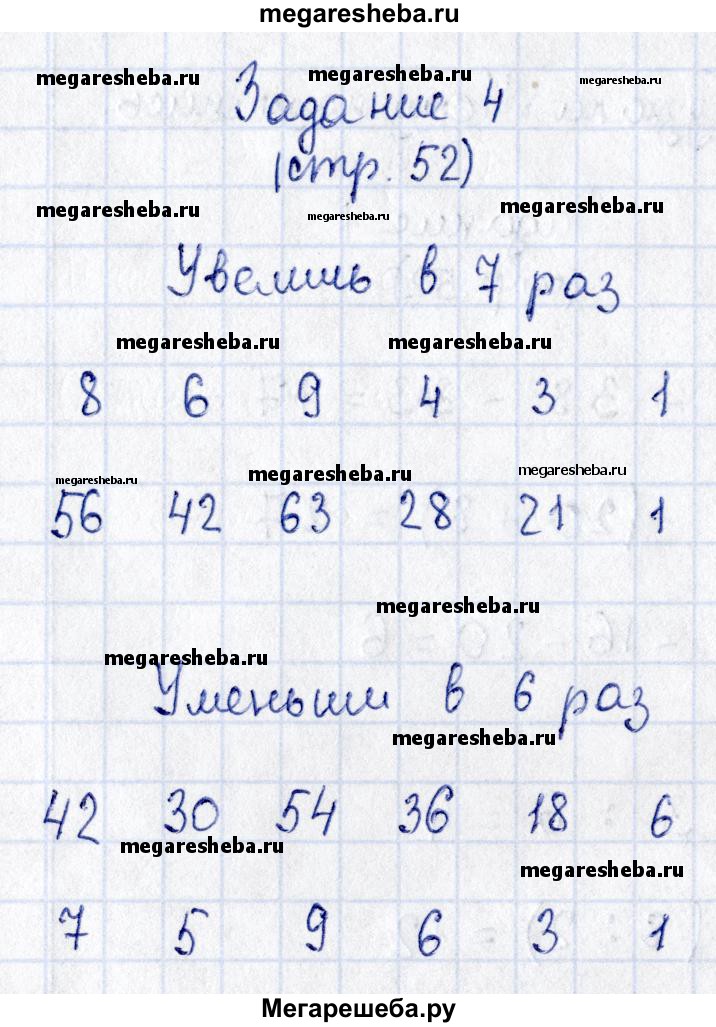 megaresheba.ru
megaresheba.ru megaresheba.ru megaresheba.ru
Задание 4
(стр. 52)
megaresheba.ru megaresheba.ru megaresheba.ru
Увеличь в 7 раз
megaresheba.ru megaresheba.ru
8 6 9 4 3 1
megaresheba.ru megaresheba.ru megaresheba.ru
56 42 63 28 21 1
megaresheba.ru
megaresheba.ru
Уменьши в 6 раз
megaresheba.ru
42 30 54 36 18 6
megaresheba.ru
megaresheba.ru
7 5 9 6 3 1
Мегарешеба.ру